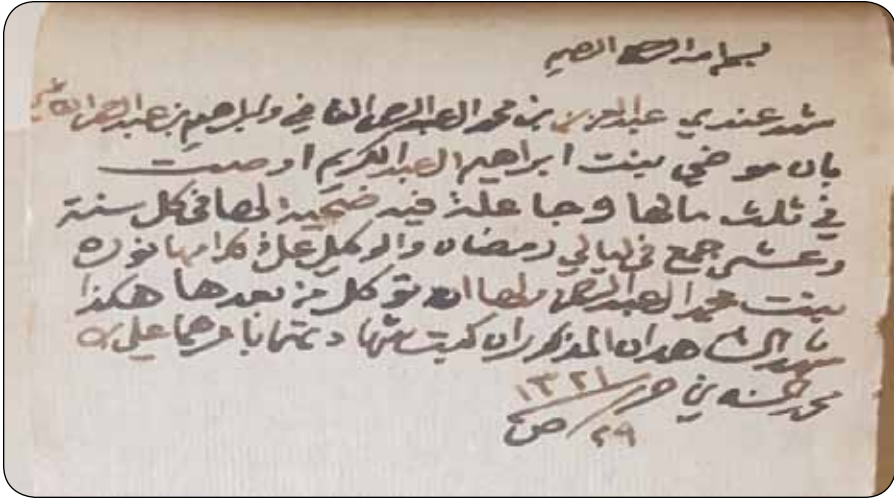 بسم الله الرحمن الرحيم
شهد عندي عبدالعزيز بن محمد العبدالرحمن القاضي وابراهيم بن عبدالرحمن
بان موضي بنت ابراهيم العبدالكريم اوصت
في ثلث مالها وجاعلة فيه ضحية لها في كل سنة
وعشى جمع في ليالي رمضان والوكيل على كرامها نوره
بنت محمد العبدالرحمن ولها ان توكل من بعدها هكذا
شهد الشاهدان المذكوران كتبت شهادتهما بامرهما علي
محمد في ١٣٢١
٢٩ ص